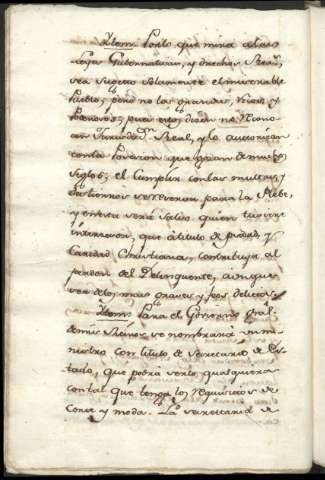 Ytem: Por lo que mira a las
Leyes Gubernativas, y derechos Reales,
sea sugeto solamente el miserable
Pueblo; pero no los grandes, Ricos, y
Poderosos; pues estos desde no Recono-
can Jurisdn. Real, y lo autorizan
con la Posesion que gozan de muchos
siglos; el cumplir con las multas, y
Gabelas se reserven para la Plebe,
y en esta sera Salido quien tuviere
intercesor, que a titulo de piedad, y
Caridad Christiana, contribuya al
perdon del Delinquente, aunque
sea de los mas graves y feos delitos.
Ytem: Para el Govierno Gral
de mis Reinos se nombrará un mi-
nistro con titulo de Secretario de Es-
tado, que podra serlo qualquiera
con tal que tenga los requisitos de
Corte y moda. La Secretaria de